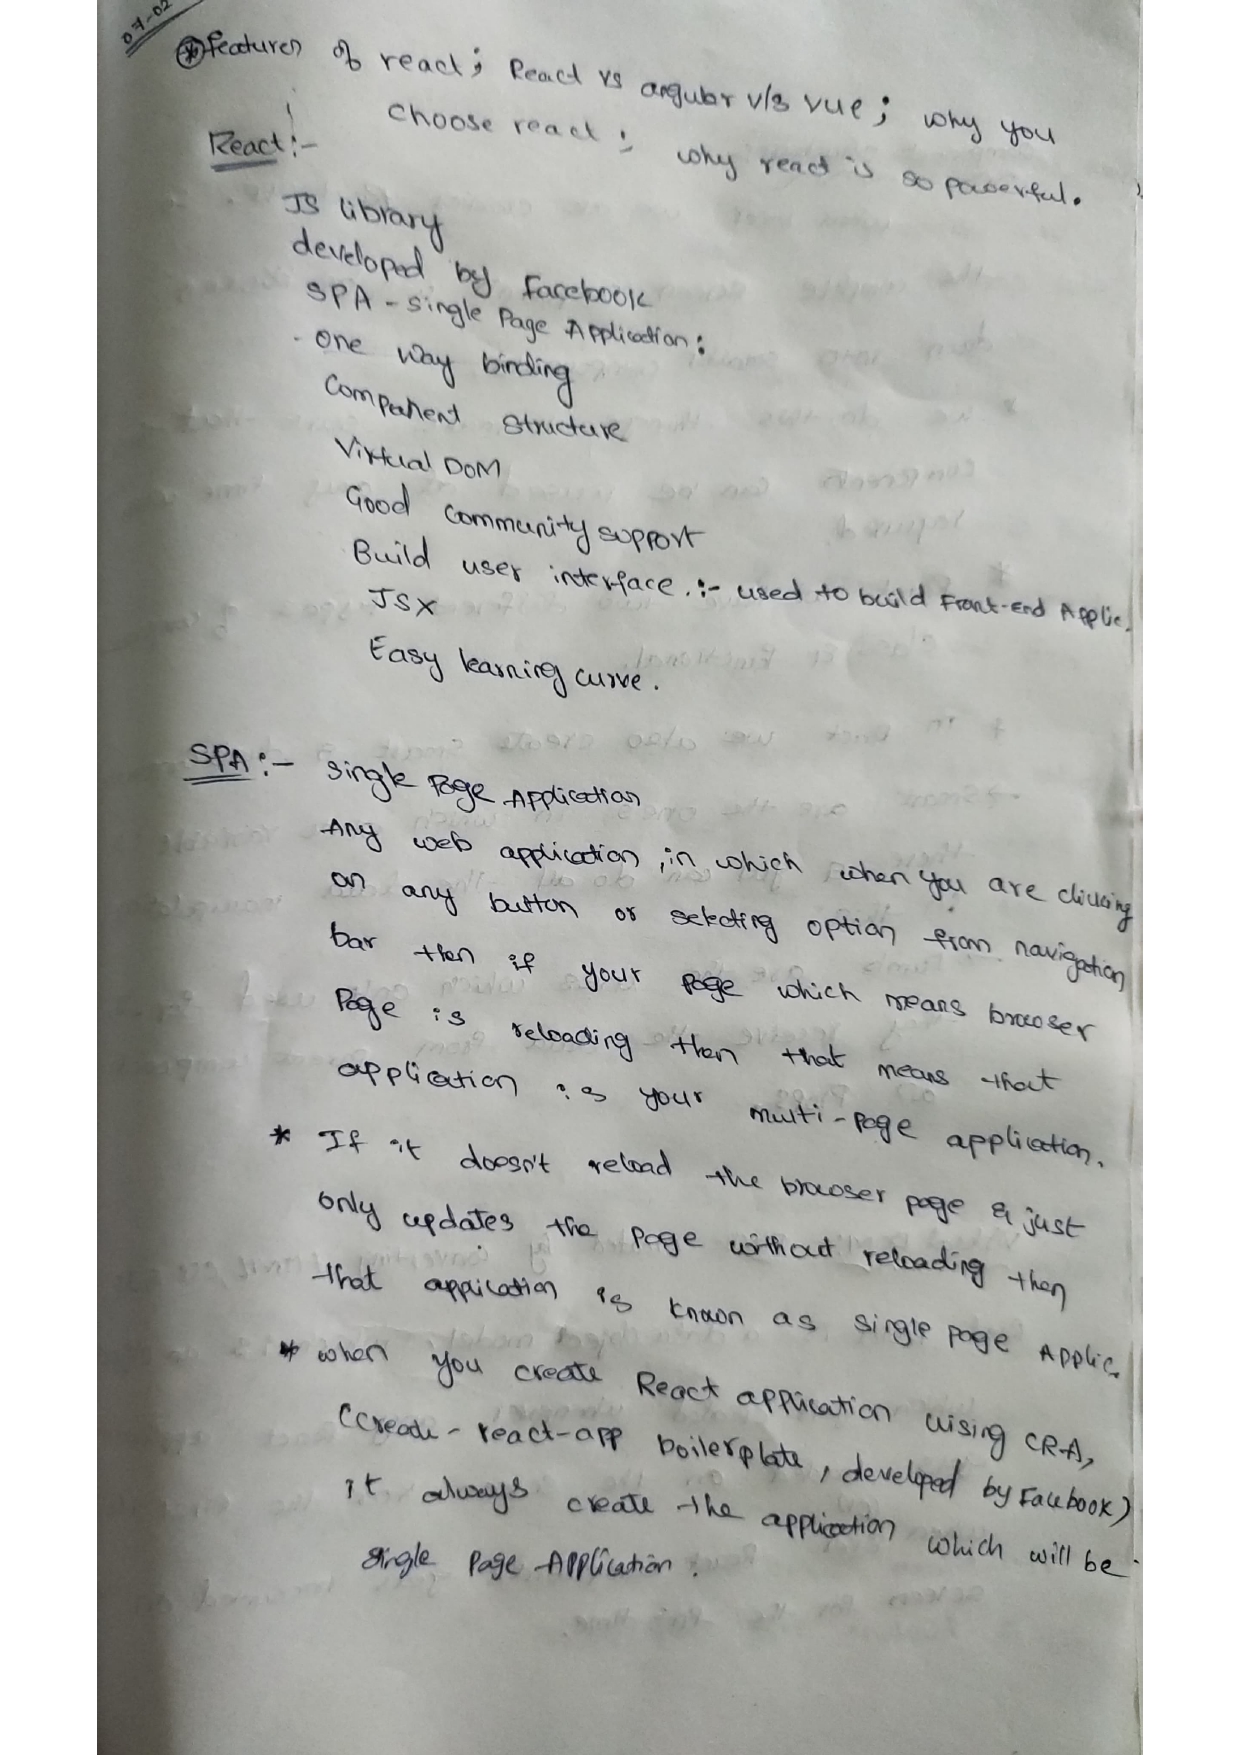 07-02
* Features of react; React vs angular v/s vue; why you
choose react; why react is so powerful.
React:-
JS library
developed by Facebook
SPA - Single Page Application:
- One way binding
Component Structure
Virtual DOM
Good community support
Build user interface. :- used to build Front-End Applic.
JSX
Easy learning curve.
SPA :- Single Page Application
Any web application, in which when you are clicking
on any button or selecting option from navigation
bar then if your page which means browser
Page is reloading then that means that
application is your multi-page application.
* If it doesn't reload the browser page & just
only updates the page without reloading then
that application is known as single page Applic.
* when you create React application using CRA,
(create-react-app boilerplate, developed by Facebook)
it always create the application which will be
single Page Application.